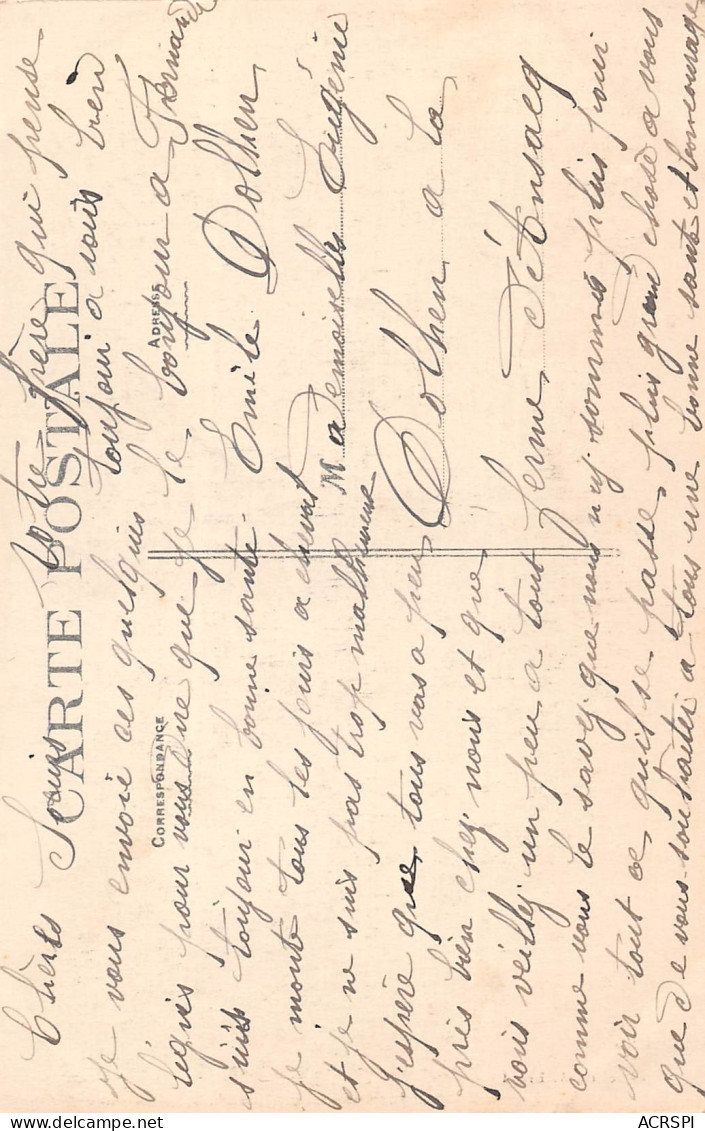 CARTE POSTALE
CORRESPONDANCE
ADRESSE
Chères Sœurs
je vous envoie ces quelques
lignes pour vous dire que je
suis toujour en bonne santé.
je monte tous les jours a cheval
et je ne suis pas trop malheureux
j'espère que tous vas a peu
près bien chez nous et que
vous veillez un peu a tout
comme vous le savez que nous n'y sommes plus pour
voir tout ce qui se passe plus grand chose a vous
que de vous souhaiter a tous une bonne santé et bon courage
Votre frère qui pense
toujour a vous bien
le bonjour a Fernande
Emile Dolhen
Mademoiselles Eugénie
Dolhen a la
ferme d'étansacq
ACRSPI